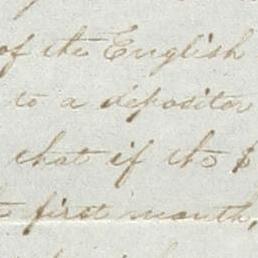 of the English
to a depositor
that if the $
first month,